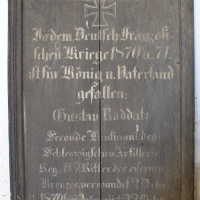 In dem Deutsch Französi-
schen Kriege 1870 u. 71.
ist für König u. Vaterland
gefallen:
Gustav Raddatz
Seconde Lieutnant des
Schleswigschen Artillerie
Reg. Ritter des eisernen
Kreuzes verwundet